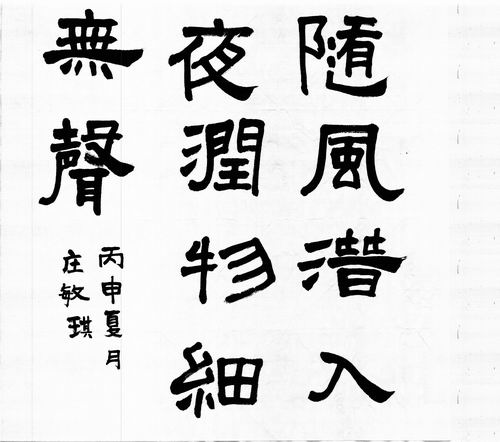 随風潛入
夜潤物細
無聲
丙申夏月
庄敏琪